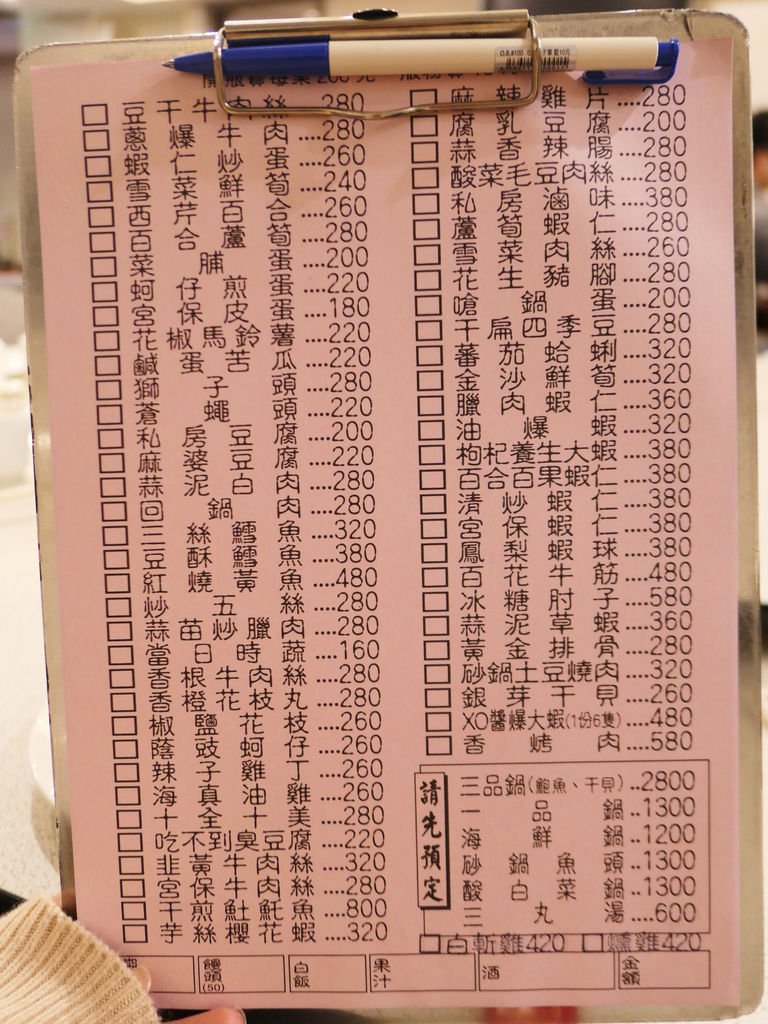 O.B.#100
豆干牛肉絲...280
蔥爆牛肉....280
蝦仁炒蛋....260
雪菜鮮筍....240
西芹百合....260
百合蘆筍....280
菜脯蛋....200
蚵仔煎蛋....220
宮保皮蛋....180
花椒馬鈴薯....220
鹹蛋苦瓜....220
獅子頭....280
蒼蠅頭....220
私房豆腐....200
麻婆豆腐....220
蒜泥白肉....280
回鍋肉....280
三絲鱈魚....320
豆酥鱈魚....380
紅燒黃魚....480
炒五絲....280
蒜苗炒臘肉....280
當日時蔬....160
香根牛肉絲....280
香橙花枝丸....280
椒鹽花枝....260
蔭豉蚵仔....260
辣子雞丁....260
海真油雞....260
十全十美....280
吃不到臭豆腐....220
韭黃牛肉絲....320
宮保牛肉絲....280
干煎𩵚魠魚....800
芋絲櫻花蝦....320
麻辣雞片....280
腐乳豆腐....200
蒜香辣腸....280
酸菜毛豆肉絲....280
私房滷味....380
蘆筍蝦仁....280
雪菜肉絲....260
花生豬腳....280
嗆鍋蛋....200
干扁四季豆....280
蕃茄蛤蜊....320
金沙鮮筍....320
臘肉蝦仁....360
油爆蝦....320
枸杞養生大蝦....380
百合百果蝦仁....380
清炒蝦仁....380
宮保蝦仁....380
鳳梨蝦球....380
百花牛筋....480
冰糖肘子....580
蒜泥草蝦....360
黃金排骨....280
砂鍋土豆燒肉....320
銀芽干貝....260
XO醬爆大蝦(1份6隻)....480
香烤肉....580
請先預定
三品鍋(鮑魚、干貝)..2800
一品鍋..1300
海鮮鍋..1200
砂鍋魚頭..1300
酸白菜鍋..1300
三丸湯....600
白斬雞420 燻雞420
饅頭(50) 白飯 果汁 酒 金額